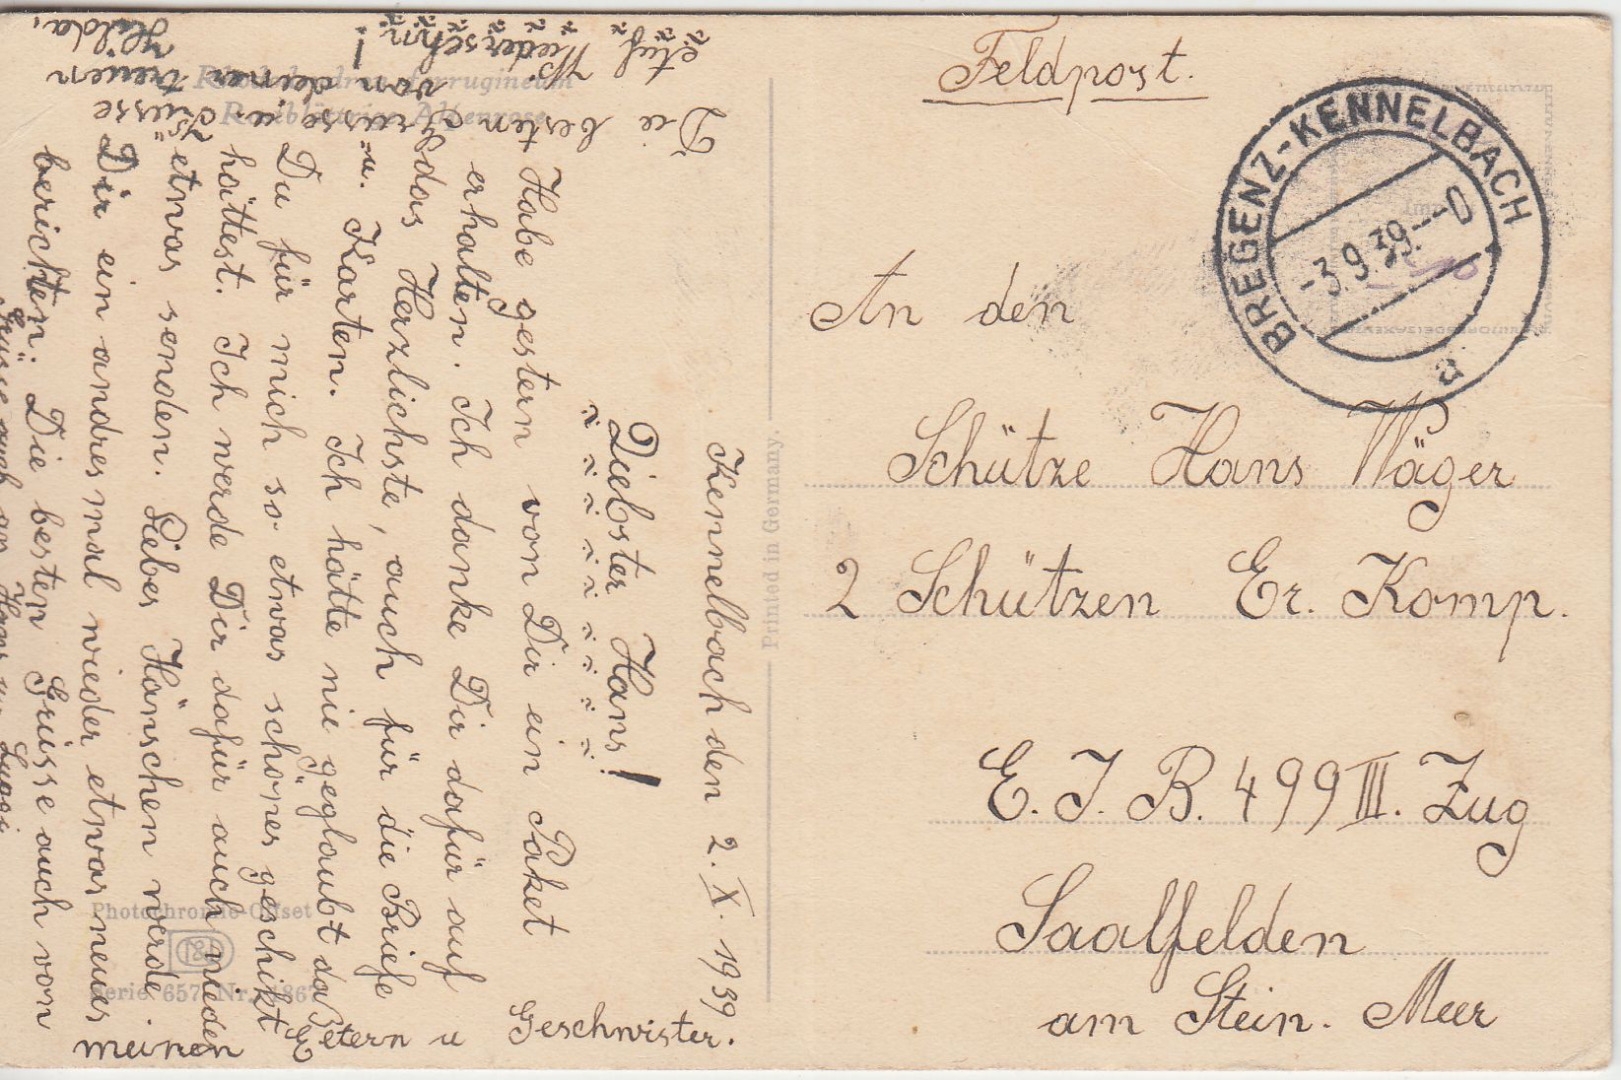 Feldpost.
BREGENZ-KENNELBACH
-3.9.39.--0
a
An den
Schütze Hans Wäger
2 Schützen Er. Komp.
E. J. B. 499 III. Zug
Saalfelden
am Stein. Meer
Printed in Germany.
Kennelbach den 2. X. 1939
Liebster Hans!
Habe gestern von Dir ein Paket
erhalten. Ich danke Dir dafür auf
das Herzlichste, auch für die Briefe
u. Karten. Ich hätte nie geglaubt das
Du für mich so etwas schönes geschikt
hättest. Ich werde Dir dafür auch wieder
etwas senden. Liebes Hänschen werde
Dir ein andresmal wieder etwas neues
berichten. Die besten Grüsse auch von
meinen Eetern u Geschwister.
Grüsse auch an Hans
Die besten Grüsse u. Küsse
von deiner treuen
Hulda,
Auf Wiedersehn!
Rhododendron ferrugineum
Rostblättrige Alpenrose
Photochromie-Offset
Serie 657 Nr.